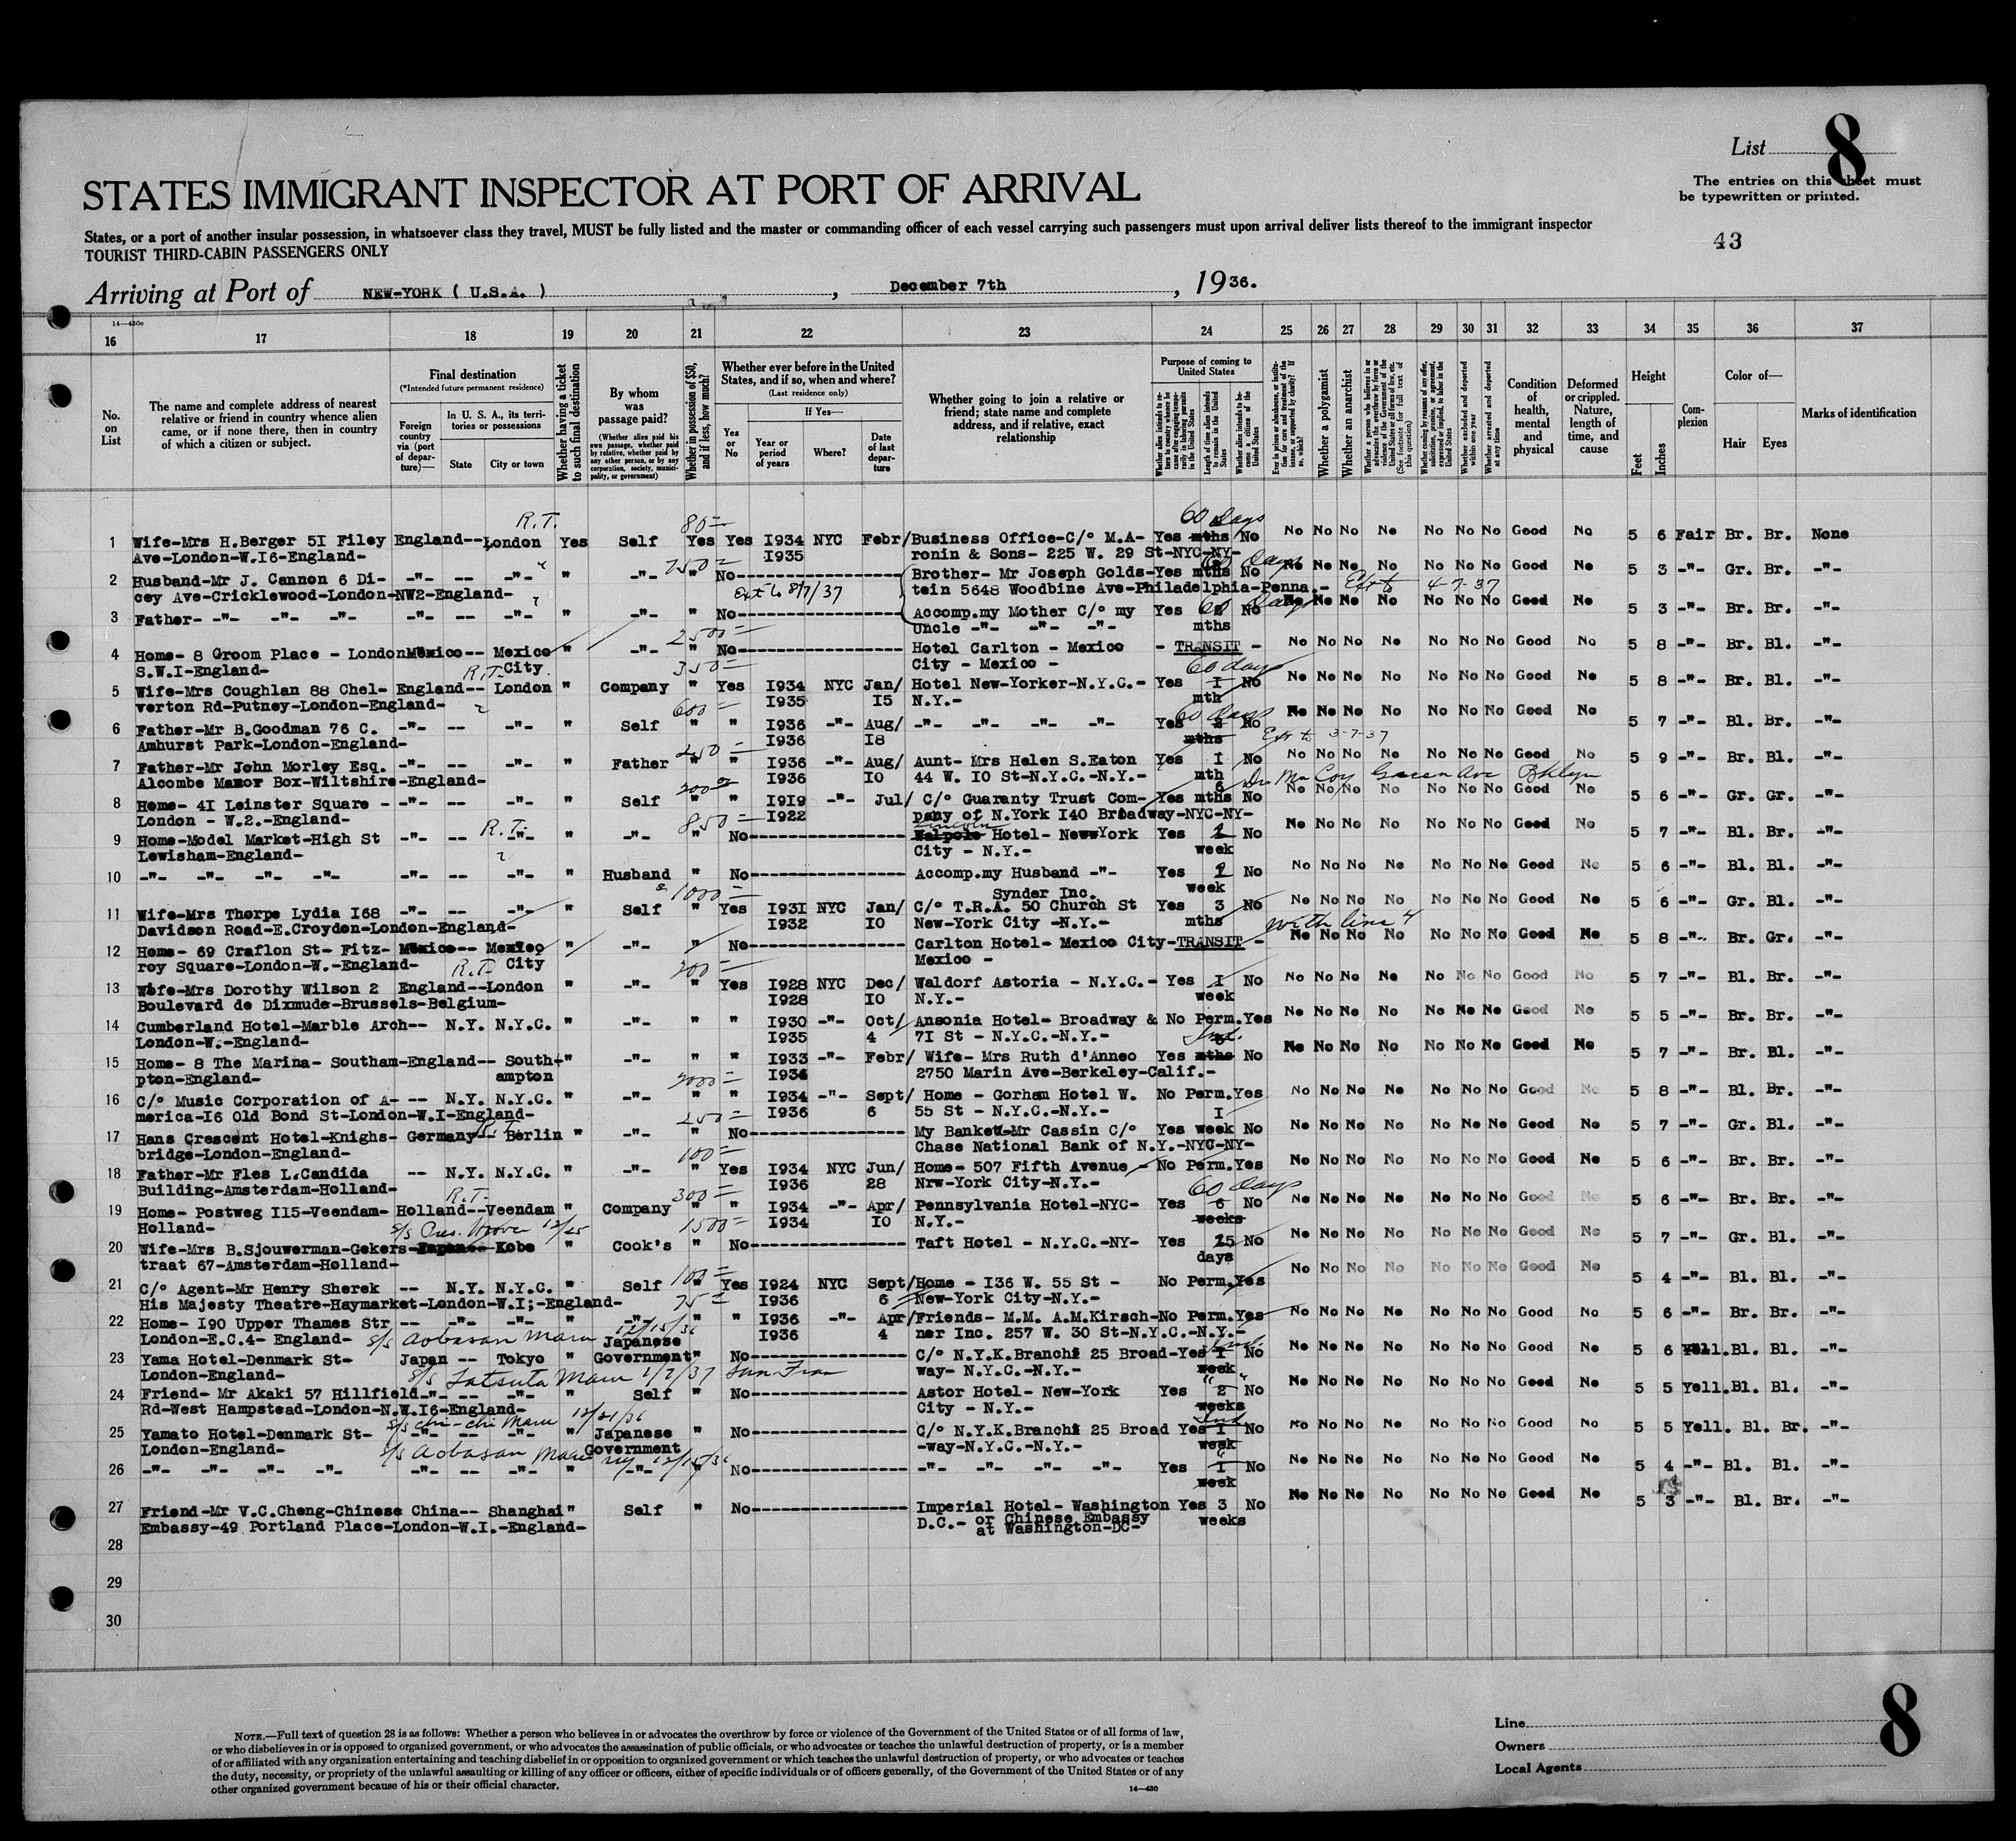 List 8
The entries on this sheet must
be typewritten or printed.
STATES IMMIGRANT INSPECTOR AT PORT OF ARRIVAL
States, or a port of another insular possession, in whatsoever class they travel, MUST be fully listed and the master or commanding officer of each vessel carrying such passengers must upon arrival deliver lists thereof to the immigrant inspector
TOURIST THIRD-CABIN PASSENGERS ONLY
43
Arriving at Port of NEW-YORK ( U.S.A. ) , December 7th , 1936.
14—430c
16 17 18 19 20 21 22 23 24 25 26 27 28 29 30 31 32 33 34 35 36 37
No. on List
The name and complete address of nearest relative or friend in country whence alien came, or if none there, then in country of which a citizen or subject.
Final destination
(*Intended future permanent residence)
Foreign country via (port of departure)—
In U. S. A., its territories or possessions
State City or town
Whether having a ticket to such final destination
By whom was passage paid?
(Whether alien paid his own passage, whether paid by relative, whether paid by any other person, or by any corporation, society, municipality, or government)
Whether in possession of $50, and if less, how much?
Whether ever before in the United States, and if so, when and where?
(Last residence only)
Yes or No
If Yes—
Year or period of years Where? Date of last departure
Whether going to join a relative or friend; state name and complete address, and if relative, exact relationship
Purpose of coming to United States
Length of time alien intends to remain in the United States
Whether alien intends to become a citizen of the United States
Whether a polygamist
Whether an anarchist
Whether excluded and deported within one year
Whether arrested and deported at any time
Condition of health, mental and physical
Deformed or crippled. Nature, length of time, and cause
Height
Feet Inches
Complexion
Color of—
Hair Eyes
Marks of identification
R.T. 80= 60 days
1 Wife-Mrs H.Berger 5I Filey England-- London Yes Self Yes Yes I934 NYC Febr/ Business Office-C/o M.A- Yes mths No No No No No No No No Good No 5 6 Fair Br. Br. None
Ave-London-W.I6-England- I935 ronin & Sons- 225 W. 29 St-NYC-NY-
750= 60 days
2 Husband-Mr J. Cannon 6 Di- -"- -- -"- " -"- " No Brother- Mr Joseph Golds- Yes mths No No No No No No No No Good No 5 3 -"- Gr. Br. -"-
cey Ave-Cricklewood-London-NW2-England- Ext to 8/7/37 tein 5648 Woodbine Ave-Philadelphia-Penna.- Ext to 4-7-37
60 days
3 Father- -"- -"- -"- -"- -- -"- " -"- " No Accomp.my Mother C/o my Yes No No No No No No No No Good No 5 3 -"- Br. Br. -"-
Uncle -"- -"- -"- mths
2500=
4 Home- 8 Groom Place - London Mexico-- Mexico " -"- " No Hotel Carlton - Mexico - TRANSIT - No No No No No No No Good No 5 8 -"- Br. Bl. -"-
S.W.I-England- City City - Mexico -
R.T. 350= 60 days
5 Wife-Mrs Coughlan 88 Chel- England-- London " Company " Yes I934 NYC Jan/ Hotel New-Yorker-N.Y.C.- Yes I No No No No No No No No Good No 5 8 -"- Br. Bl. -"-
verton Rd-Putney-London-England- I935 I5 N.Y.- mth
600= 60 days
6 Father-Mr B.Goodman 76 C. -"- -- -"- " Self " " I936 -"- Aug/ -"- -"- -"- -"- Yes 2 No No No No No No No No Good No 5 7 -"- Bl. Br. -"-
Amhurst Park-London-England- I936 I8 mths Ext to 3-7-37
250=
7 Father-Mr John Morley Esq. -"- -- -"- " Father " " I936 -"- Aug/ Aunt- Mrs Helen S.Eaton Yes I No No No No No No No No Good No 5 9 -"- Br. Bl. -"-
Alcombe Manor Box-Wiltshire-England- I936 I0 44 W. I0 St-N.Y.C.-N.Y.- mth
Dr. Mc Coy Green Ave Bklyn
8 Home- 4I Leinster Square - -"- -- -"- " Self " " I9I9 -"- Jul/ C/o Guaranty Trust Com- Yes 6 mths No No No No No No No No Good No 5 6 -"- Gr. Gr. -"-
London - W.2.-England- I922 pany of N.York I40 Broadway-NYC-NY-
R.T. 850= Lincoln
9 Home-Model Market-High St -"- -- -"- " -"- " No Walpole Hotel- New York Yes 1 No No No No No No No No Good No 5 7 -"- Bl. Br. -"-
Lewisham-England- City - N.Y.- week
10 -"- -"- -"- -"- -"- -- -"- " Husband " No Accomp.my Husband -"- Yes 1 No No No No No No No No Good No 5 6 -"- Bl. Bl. -"-
week
1000= Synder Inc.
11 Wife-Mrs Thorpe Lydia I68 -"- -- -"- " Self " Yes I93I NYC Jan/ C/o T.R.A. 50 Church St Yes 3 No No No No No No No No Good No 5 6 -"- Gr. Bl. -"-
Davidson Road-E.Croydon-London-England- I932 I0 New-York City -N.Y.- mths with line 4
12 Home- 69 Craflon St- Fitz- Mexico-- Mexico " -"- No Carlton Hotel- Mexico City-TRANSIT - No No No No No No No Good No 5 8 -"- Br. Gr. -"-
roy Square-London-W.-England- City Mexico -
R.T.
13 Wife-Mrs Dorothy Wilson 2 England--London " -"- " Yes I928 NYC Dec/ Waldorf Astoria - N.Y.C.- Yes I No No No No No No No No Good No 5 7 -"- Bl. Br. -"-
Boulevard de Dixmude-Brussels-Belgium- I928 I0 N.Y.- week
14 Cumberland Hotel-Marble Arch-- N.Y. N.Y.C. " -"- " " I930 -"- Oct/ Ansonia Hotel- Broadway & No Perm.Yes No No No No No No No Good No 5 5 -"- Br. Br. -"-
London-W.-England- I935 4 7I St - N.Y.C.-N.Y.-
15 Home- 8 The Marina- Southam-England-- South- " -"- " " I933 -"- Febr/ Wife- Mrs Ruth d'Anneo Yes mths No No No No No No No No Good No 5 7 -"- Br. Bl. -"-
pton-England- ampton I936 2750 Marin Ave-Berkeley-Calif.-
16 C/o Music Corporation of A- -- N.Y. N.Y.C. " -"- " " I934 -"- Sept/ Home - Gorham Hotel W. No Perm.Yes No No No No No No No Good No 5 8 -"- Bl. Br. -"-
merica-I6 Old Bond St-London-W.I-England- I936 6 55 St - N.Y.C.-N.Y.-
R.T. 250=
17 Hans Crescent Hotel-Knighs- Germany-- Berlin " -"- " No My Banket-Mr Cassin C/o Yes I week No No No No No No No No Good No 5 7 -"- Gr. Bl. -"-
bridge-London-England- Chase National Bank of N.Y.-NYC-NY-
100=
18 Father-Mr Fles L.Candida -- N.Y. N.Y.C. " -"- " Yes I934 NYC Jun/ Home- 507 Fifth Avenue - No Perm.Yes No No No No No No No Good No 5 6 -"- Br. Br. -"-
Building-Amsterdam-Holland- I936 28 Nrw-York City-N.Y.-
R.T. 300= 60 days
19 Home- Postweg II5-Veendam- Holland--Veendam " Company " " I934 -"- Apr/ Pennsylvania Hotel-NYC- Yes 6 No No No No No No No No Good No 5 6 -"- Br. Br. -"-
Holland- I934 I0 N.Y.- weeks
1500=
20 Wife-Mrs B.Sjouwerman-Gekers- Japan-- Kobe " Cook's " No Taft Hotel - N.Y.C.-NY- Yes I5 No No No No No No No No Good No 5 7 -"- Gr. Bl. -"-
traat 67-Amsterdam-Holland- days
100=
21 C/o Agent-Mr Henry Sherek -- N.Y. N.Y.C. " Self " Yes I924 NYC Sept/ Home - I36 W. 55 St - No Perm.Yes No No No No No No No Good No 5 4 -"- Bl. Bl. -"-
His Majesty Theatre-Haymarket-London-W.I;-England- I936 6 New-York City-N.Y.-
75=
22 Home- I90 Upper Thames Str -- -"- -"- " -"- " " I936 -"- Apr/ Friends- M.M. A.M.Kirsch-No Perm.Yes No No No No No No No Good No 5 6 -"- Br. Br. -"-
London-E.C.4- England- I936 4 ner Inc. 257 W. 30 St-N.Y.C.-N.Y.-
s/s Aobasan Maru 12/15/36 Japanese
23 Yama Hotel-Denmark St- Japan -- Tokyo " Government " No C/o N.Y.K.Branch 25 Broad- Yes I No No No No No No No No Good No 5 6 Yell. Bl. Bl. -"-
London-England- way- N.Y.C.-N.Y.- week
s/s Tatsuta Maru 1/7/37 San Fran
24 Friend- Mr Akaki 57 Hillfield -"- -- -"- " Self " No Astor Hotel- New-York Yes 2 No No No No No No No No Good No 5 5 Yell. Bl. Bl. -"-
Rd-West Hampstead-London-N.W.I6-England- City - N.Y.- weeks
25 Yamato Hotel-Denmark St- -"- -- -"- " Japanese " No C/o N.Y.K.Branch 25 Broad Yes I No No No No No No No No Good No 5 5 Yell. Bl. Br. -"-
London-England- Government -way-N.Y.C.-N.Y.- week
s/s Aobasan Maru NY 12/15/36
26 -"- -"- -"- -"- -"- -- -"- " -"- " No -"- -"- -"- -"- Yes I No No No No No No No No Good No 5 4 -"- Bl. Bl. -"-
week
27 Friend-Mr V.C.Cheng-Chinese China-- Shanghai " Self " No Imperial Hotel- Washington Yes 3 No No No No No No No No Good No 5 3 -"- Bl. Br. -"-
Embassy-49 Portland Place-London-W.I.-England- D.C.- or Chinese Embassy at Washington-DC- weeks
28
29
30
NOTE.—Full text of question 28 is as follows: Whether a person who believes in or advocates the overthrow by force or violence of the Government of the United States or of all forms of law,
or who disbelieves in or is opposed to organized government, or who advocates the assassination of public officials, or who advocates or teaches the unlawful destruction of property, or is a member
of or affiliated with any organization entertaining and teaching disbelief in or opposition to organized government or which teaches the unlawful destruction of property, or who advocates or teaches
the duty, necessity, or propriety of the unlawful assaulting or killing of any officer or officers, either of specific individuals or of officers generally, of the Government of the United States or of any
other organized government because of his or their official character.
14—430
Line
Owners
Local Agents
8